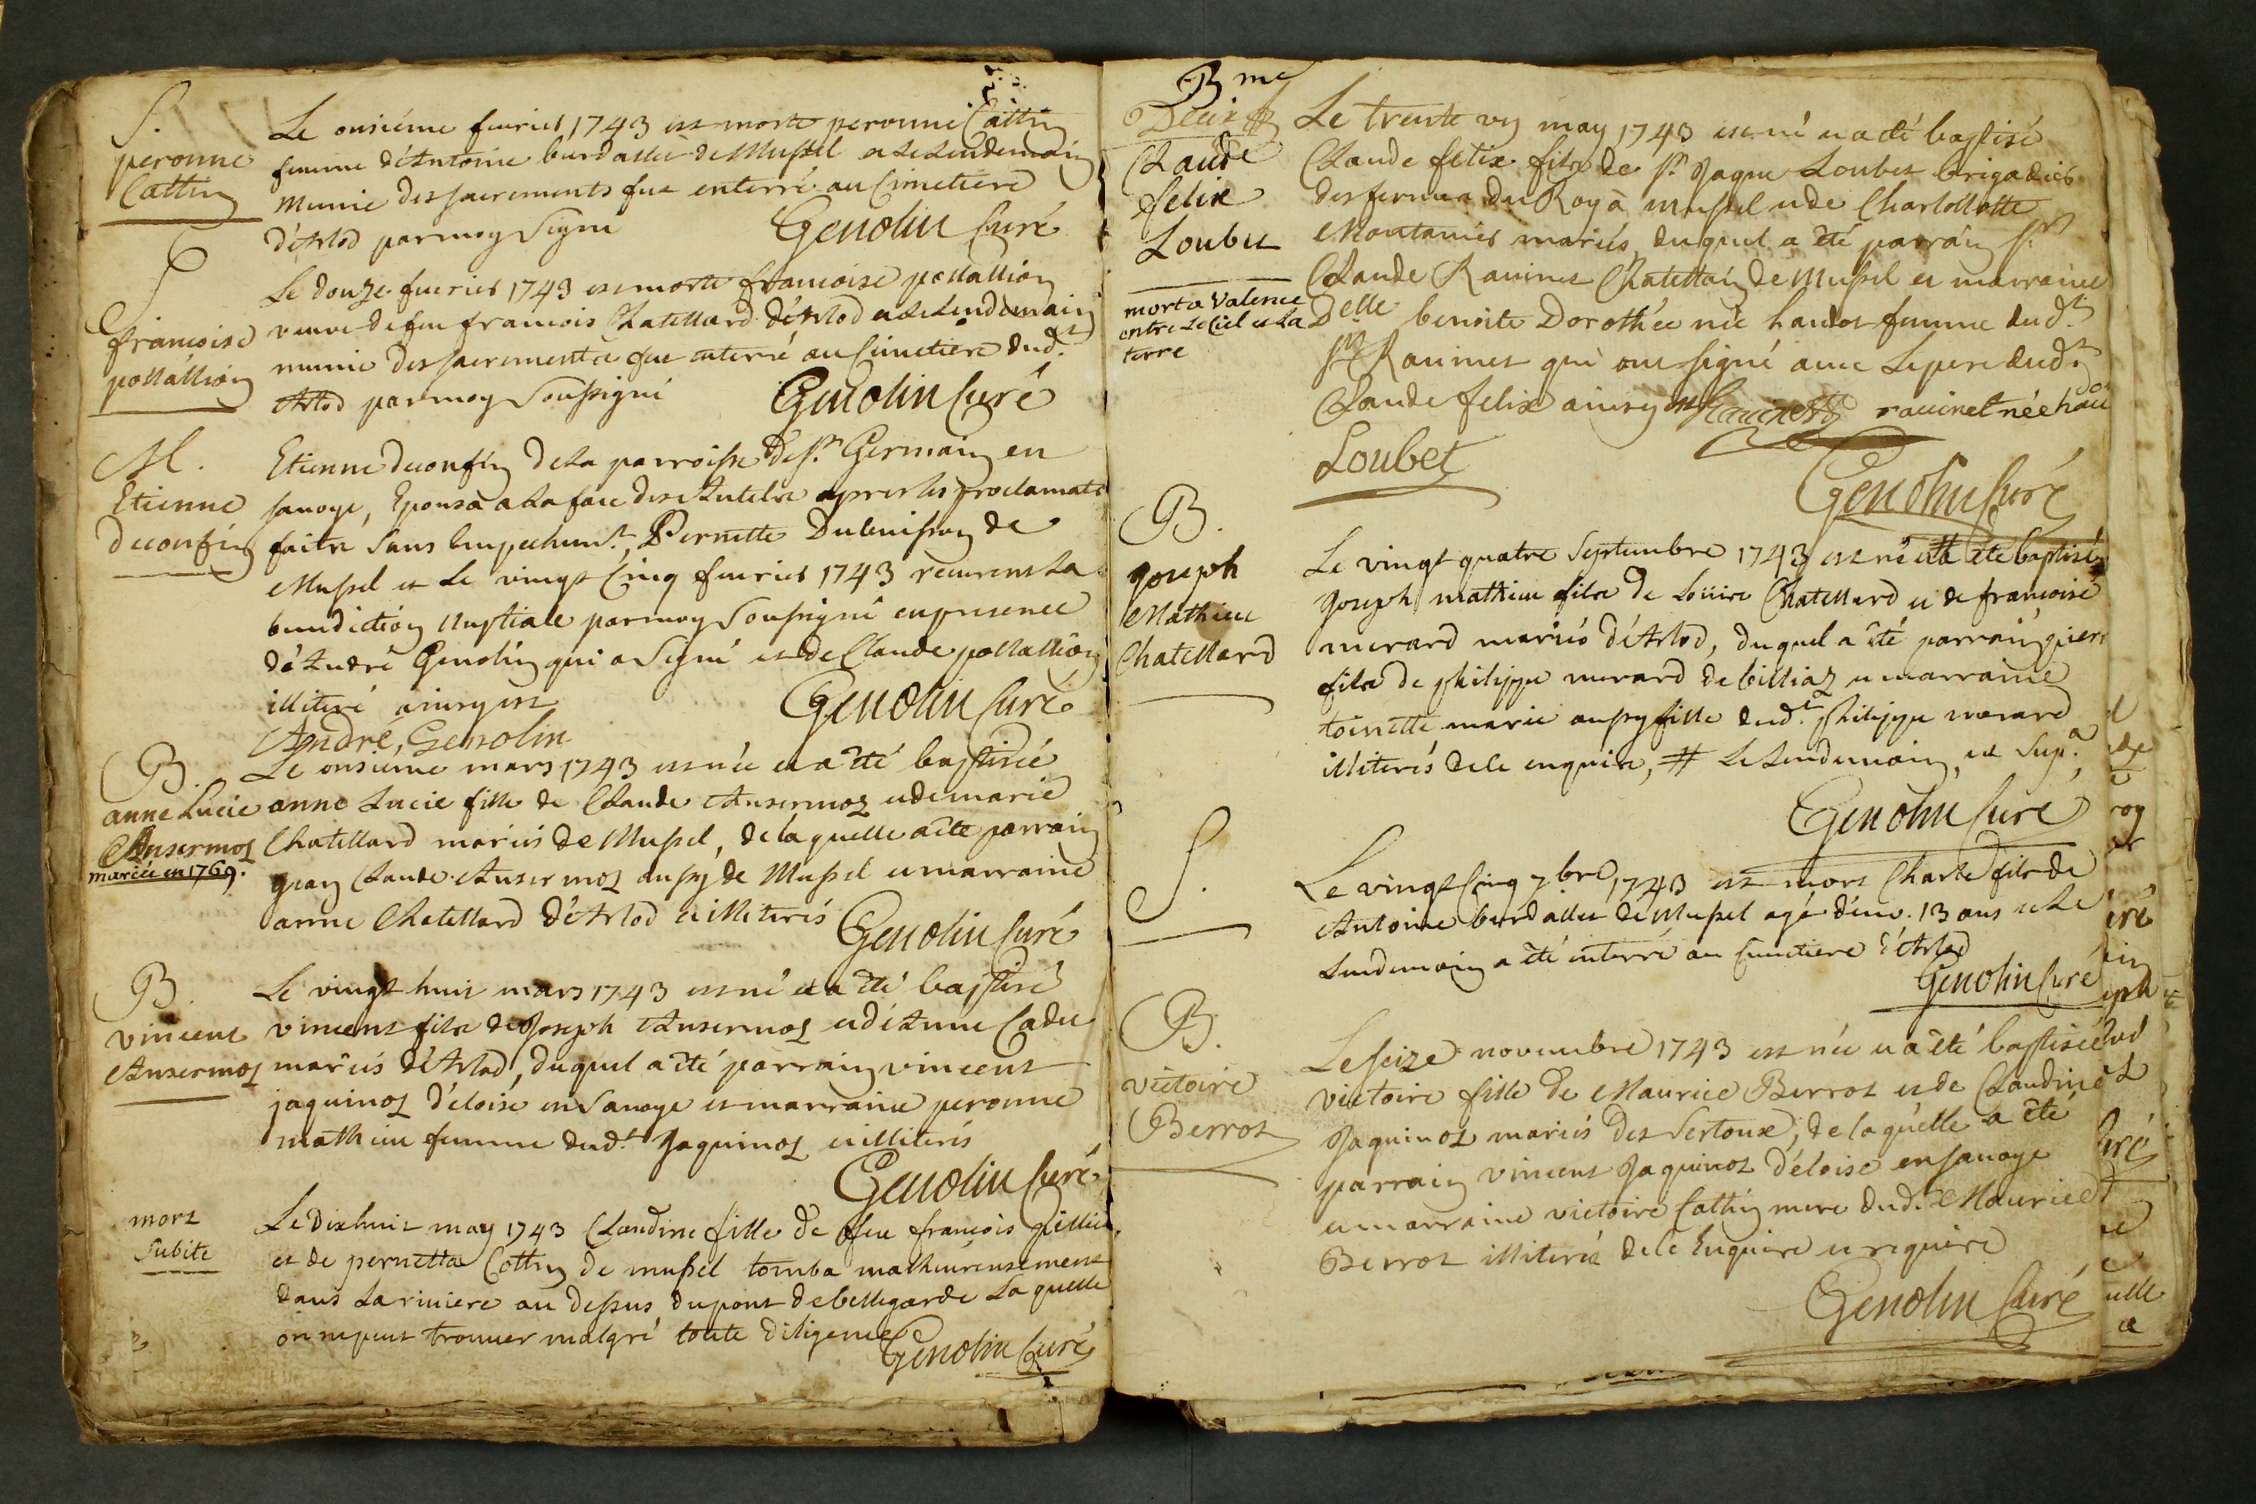 S.
peronne
Cattin
Le onsiéme feurier 1743 est morte peronne Cattin
femme d'Antoine burdallet de Mussel et le lendemain
Munie des sacrements fut enterré au Cimetiere
d'Arlod par moy signé Genolin Curé
S
francoise
postallion
Le douze feurier 1743 est morte francoise postallion
veuve de feu francois Chatellard d'Arlod et le lendemain
munie des sacrements a fut enterré au Cimetiere dud.t
Arlod par moy soussigné Genolin Curé
M.
Etienne
deconfin
Etienne deconfin de la parroisse de St. Germain en
savoye, Epousà a la face des Autels apres les proclamats
faites sans Empechemt. Pernette Dubuisson de
Mussel et le vingt Cinq feurier 1743 receurent La
benediction Nuptiale par moy soussigné en presence
d'André Genolin qui a signé et de Claude postallion
illiteré Genolin Curé
André, Genolin
B.
anne Lucie
Ansermoz
mariée en 1769.
Le onsieme mars 1743 est née et a êté baptisée
anne Lucie fille de Claude Ansermoz et de marie
Chatellard mariés de Mussel, de laquelle a êté parrain
Claude Ansermoz aussy de Mussel et marraine
anne Chatellard d'Arlod illiterés Genolin Curé
B.
vincent
Ansermoz
Le vingt huit mars 1743 est né et a êté baptisé
vincent fils de Joseph Ansermoz et d'Anne Cadet
mariés d'Arlod, duquel a êté parrain vincent
jaquinoz d'éloise en Savoye et marraine peronne
mathieu femme dud.t Jaquinoz illiterés
Genolin Curé
mort
subite
Le dixhuit may 1743 Claudine fille de feu francois
et de pernetta Cottin de mussel tomba malheureusement
dans La riviere au dessus du pont de bellegarde Laquelle
on ne peut trouver malgré toute diligence
Genolin Curé
B
Claude
felix
Loubet
mort a Valence
entre Le Ciel et La
terre
Le trente may 1743 est né et a êté baptisé
Claude felix fils de Sr. Jaque Loubet brigadier
des fermes du Roy à mussel et de Charlollotte
Montanier mariés, duquel a êté parrain Sr.
Claude Ravinet Chatellain de Mussel et marraine
Delle benoite Dorothée née handot femme dud.t
Sr. Ravinet qui ont signé avec Le pere dud.t
Claude felix ravinet née
Loubet
Genolin Curé
B.
Joseph
Mathieu
Chatellard
Le vingt quatre Septembre 1743 est né et a êté baptisé
Joseph mathieu fils de Loüis Chatellard et de francoise
merard mariés d'Arlod, duquel a êté parrain
fils de philippe merard de billiaz et marraine
toinette marie aussy fille dud.t philippe merard
illiterés de ce enquis, # Le Lendemain, ut Sup.a
Genolin Curé
S.
Le vingt Cinq 7bre 1743 est mort Charle fils de
Antoine burdallet de Mussel agé d'env. 13 ans et Le
Lendemain a êté enterré au Cimetiere d'Arlod
Genolin Curé
B.
victoire
Berrot
Le seize novembre 1743 est née et a êté baptisée
victoire fille de Maurice Berrot et de Claudine
Jaquinot mariés des Sertoux, de laquelle a êté
parrain vincent Jaquinot d'éloise en savoye
et marraine victoire Cathin mere dud.t Maurice
Berrot illiterés de ce Enquire et require
Genolin Curé